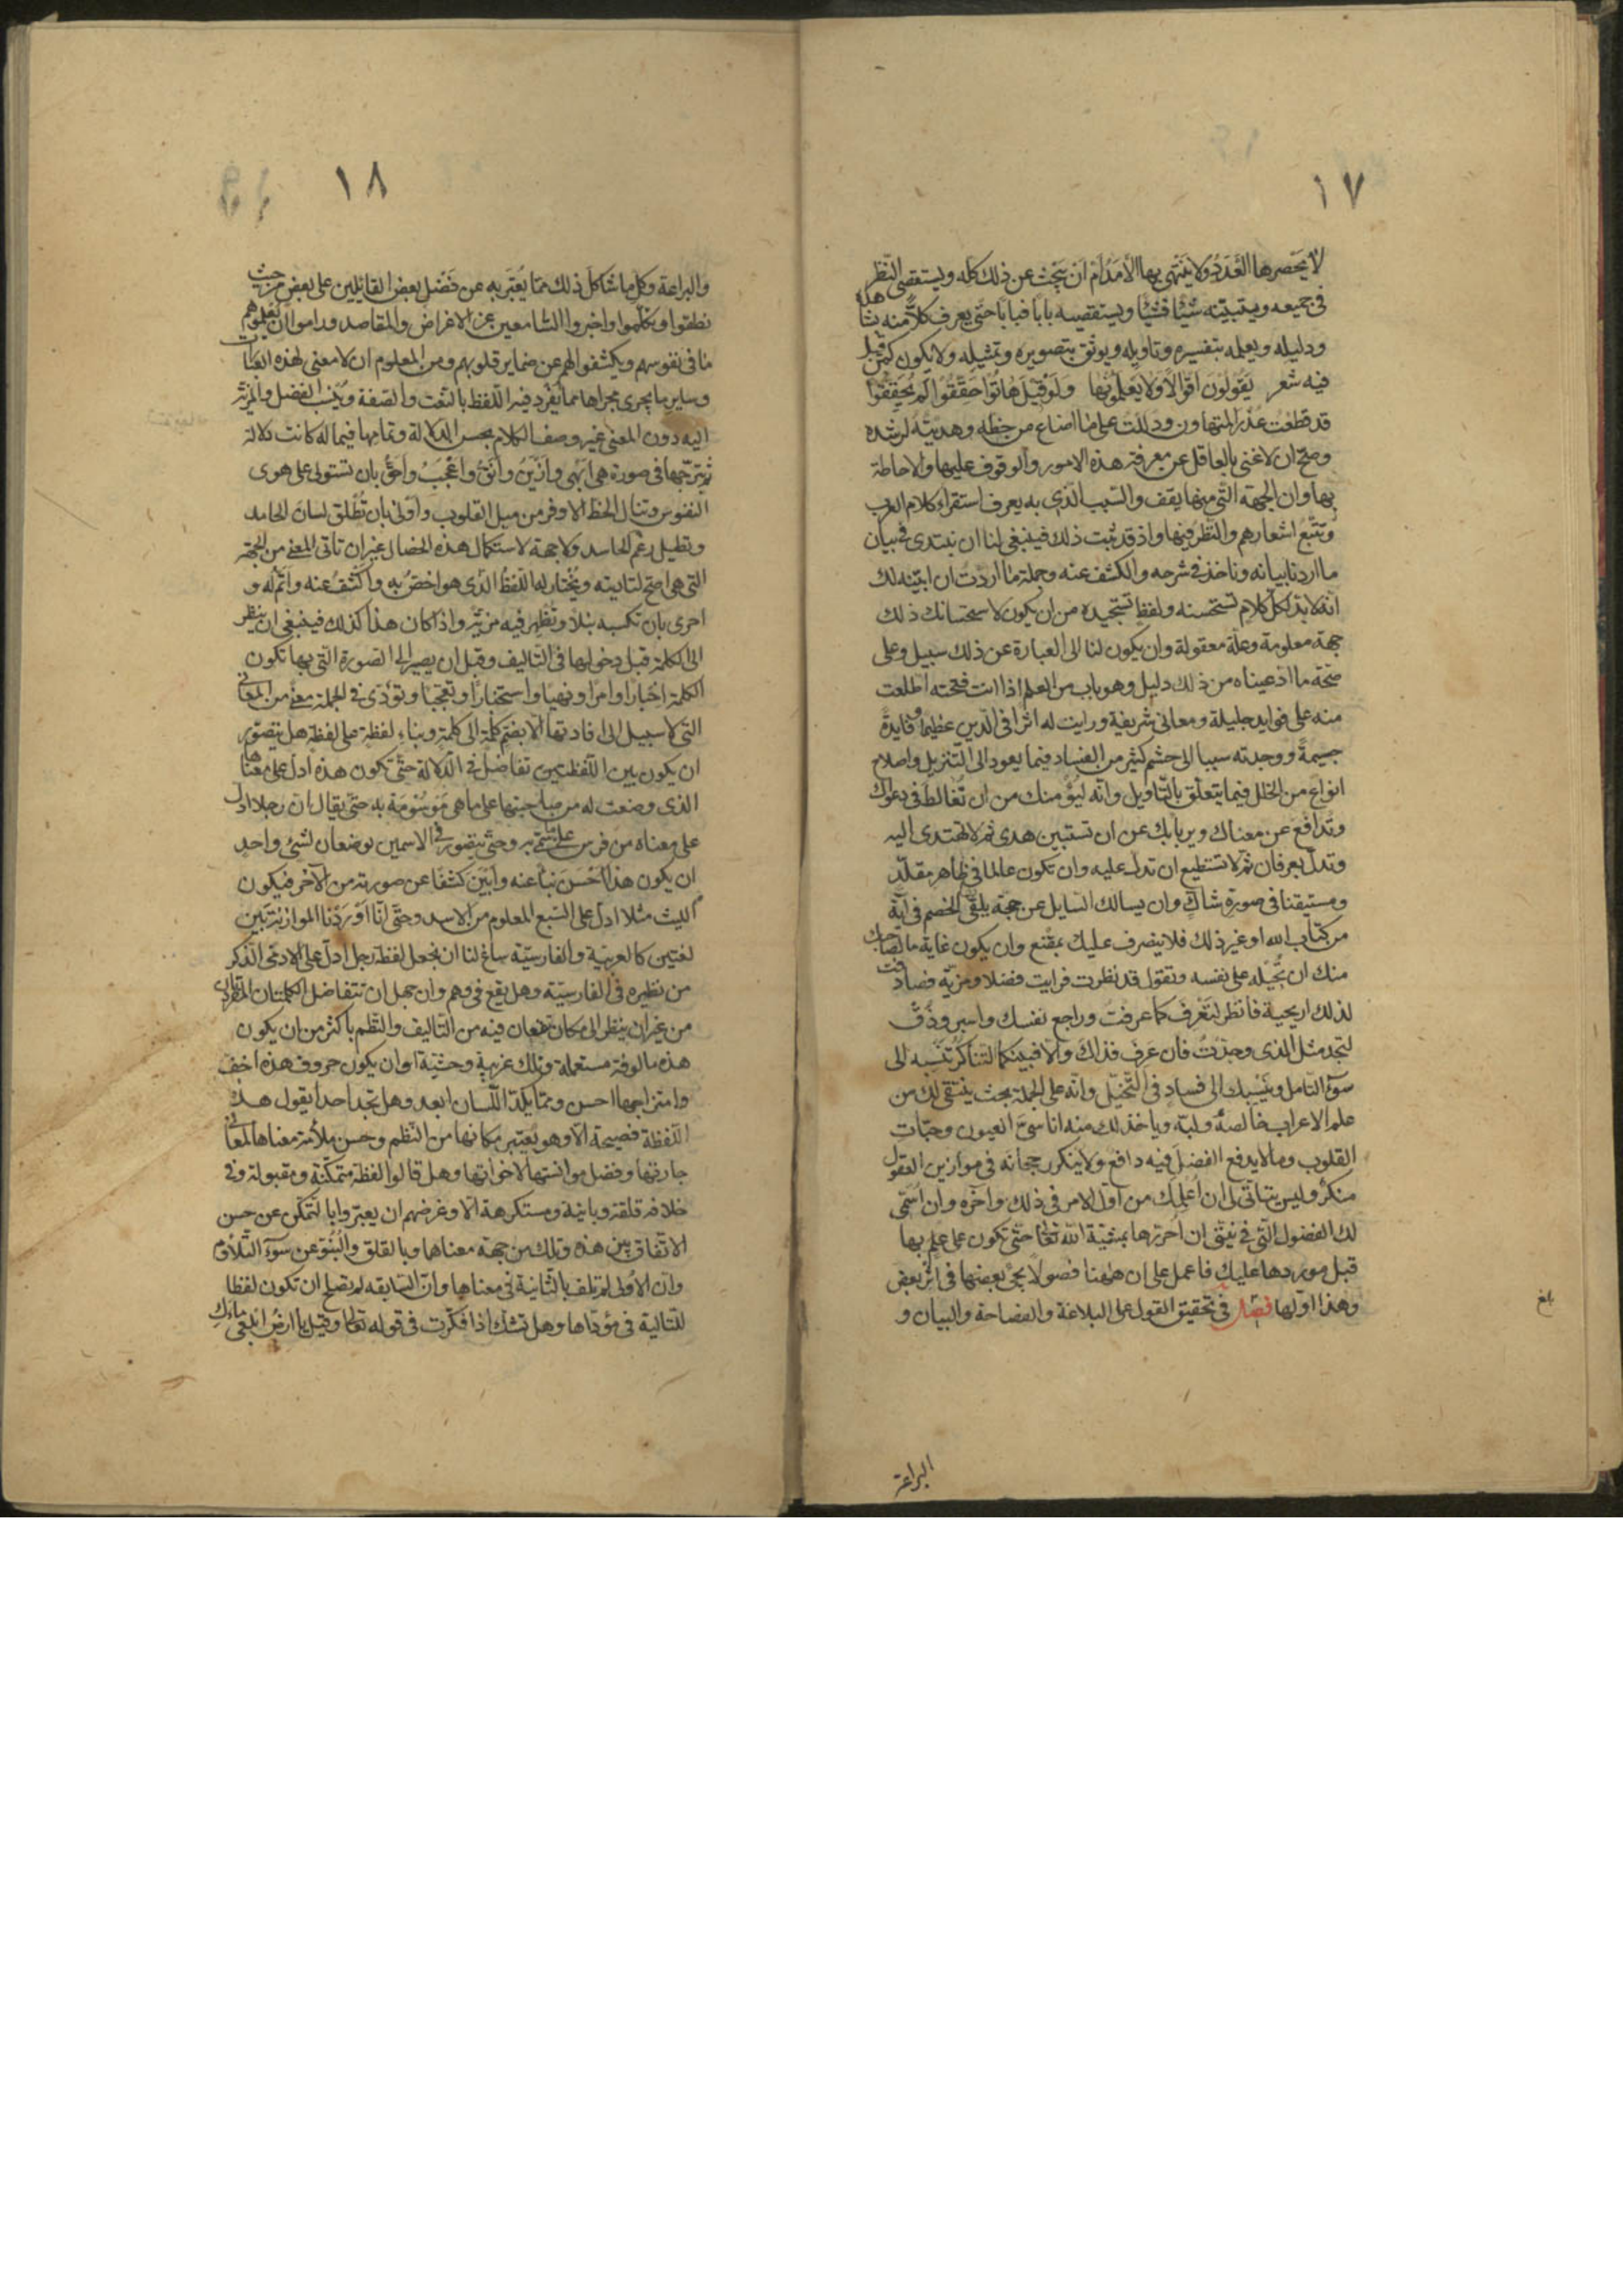 ١٧
لا يحصرها العدد ولا ينتهى بها الأمد أم ان يبحث عن ذلك كله ويستقصى النظر
فى جميعه ويتبيّنه شيئا فشيئا ويستقصيه بابا فبابا حتى يعرف كلّا منه بشاهده
ودليله ويعلمه بتفسيره وتاويله ويوثق بتصويره وتمثيله ولا يكون كمن قيل
فيه شعر يقولون اقوالا ولا يعلمونها ولو قيل هاتوا حققوا لم يحققوا
قد قطعت عذر المتهاون ودللت على ما اضاع من حظه وهديته لرشده
وصح ان لا غنى بالعاقل عن معرفة هذه الامور والوقوف عليها والاحاطة
بها وان الجهة التى منها يقف والسبب الذى به يعرف استقراء كلام العرب
وتتبع اشعارهم والنظر فيها واذ قد ثبت ذلك فينبغى لنا ان نبتدى فى بيان
ما اردنا بيانه وناخذ فى شرحه والكشف عنه وجملة ما اردت ان ابيّنه لك
انه لا بد لكل كلام تستحسنه ولفظ تستجيده من ان يكون لاستحسانك ذلك
جهة معلومة وعلة معقولة وان يكون لنا الى العبارة عن ذلك سبيل وعلى
صحة ما ادعيناه من ذلك دليل وهو باب من العلم اذا انت فتحته اطلعت
منه على فوايد جليلة ومعانى شريفة ورايت له اثرا فى الدين عظيما وفايدة
جسيمة ووجدته سببا الى حشم كثير من الفساد فيما يعود الى التنزيل واصلاح
انواع من الخلل فيما يتعلق بالتاويل وانه ليؤمنك من ان تغالط فى دعواك
وتدافع عن معناك ويربا بك عن ان تستبين هدى ثم لا تهتدى اليه
وتدل بعرفان ثم لا تستطيع ان تدل عليه وان تكون عالما فى ظاهر مقلد
ومستيقنا فى صورة شاك وان يسالك السايل عن حجة يلقى الخصم فى آية
من كتاب الله او غير ذلك فلا ينصرف عليك بمقنع وان يكون غاية ما لصاحبك
منك ان تحيله على نفسه وتقول قد نظرت فرايت فضلا ومزية فصادفت
لذلك اريحية فانظر لتعرف كما عرفت وراجع نفسك واسبر وذق
لتجد مثل الذى وجدت فان عرف فذاك والا فبينكما التناكر تنسبه الى
سوء التامل وينسبك الى فساد فى التخيل وانه على الجملة بحث ينتقى لك من
علم الاعراب خالصه ولبه وياخذ لك منه اناسى العيون وحبات
القلوب وما لا يدفع الفضل فيه دافع ولا ينكر رجحانه فى موازين العقول
منكر وليس يتاتى لى ان اعلمك من اول الامر فى ذلك وآخره وان اسمى
لك الفصول التى فى نيتى ان احررها بمشية الله تعالى حتى تكون على علم بها
قبل موردها عليك فاعمل على ان ههنا فصولا يجئ بعضها فى اثر بعض
وهذا اولها فصل فى تحقيق القول على البلاغة والفصاحة والبيان و
بلغ
البراعة
١٨
والبراعة وكل ما شاكل ذلك مما يعبّر به عن فضل بعض القائلين على بعض من حيث
نطقوا وتكلموا واخبروا السامعين عن الاغراض والمقاصد وراموا ان يعلموهم
ما فى نفوسهم ويكشفوا لهم عن ضماير قلوبهم ومن المعلوم ان لا معنى لهذه العبارات
وساير ما يجرى مجراها مما يفرد فيه اللفظ بالنعت والصفة وينسب الفضل والمزية
اليه دون المعنى غير وصف الكلام بحسن الدلالة وتمامها فيما له كانت دلالة
ثم تبرجها فى صورة هى ابهى وازين وآنق واعجب واحق بان تستولى على هوى
النفوس وتنال الحظ الاوفر من ميل القلوب واولى بان تطلق لسان الحامد
وتطيل رغم الحاسد ولا جهة لاستكمال هذه الخصال غير ان تاتى المعنى من الجهة
التى هى اصح لتاديته ويختار له اللفظ الذى هو اخص به واكشف عنه واتم له و
احرى بان تكسبه نبلا وتظهر فيه مزية واذا كان هذا كذلك فينبغى ان ينظر
الى الكلمة قبل دخولها فى التاليف وقبل ان يصير الى الصورة التى بها تكون
الكلمة اخبارا وامرا ونهيا واستخبارا وتعجبا وتؤدى فى الجملة معنى من المعانى
التى لا سبيل الى افادتها الا بضم كلمة الى كلمة وبناء لفظة على لفظة هل يتصور
ان يكون بين اللفظتين تفاضل فى الدلالة حتى تكون هذه ادل على معناها
الذى وضعت له من صاحبتها على ما هى موسومة به حتى يقال ان رجلا ادل
على معناه من فرس على ما سمى به وحتى يتصور فى الاسمين يوضعان لشئ واحد
ان يكون هذا احسن نبأ عنه وابين كشفا عن صورته من الآخر فيكون
الليث مثلا ادل على السبع المعلوم من الاسد وحتى انا لو اردنا الموازنة بين
لغتين كالعربية والفارسية ساغ لنا ان نجعل لفظة رجل ادل على الادمى الذكر
من نظيره فى الفارسية وهل يقع فى وهم وان جهل ان تتفاضل الكلمتان المفردتان
من غير ان ينظر الى مكان تقعان فيه من التاليف والنظم باكثر من ان يكون
هذه مالوفة مستعملة وتلك غريبة وحشية او ان يكون حروف هذه اخف
وامتزاجها احسن ومما يكد اللسان ابعد وهل تجد احدا يقول هذه
اللفظة فصيحة الا وهو يعتبر مكانها من النظم وحسن ملائمة معناها لمعانى
جارتها وفضل موانستها لاخواتها وهل قالوا لفظة متمكنة ومقبولة وفى
خلافه قلقة ونابية ومستكرهة الا وغرضهم ان يعبروا بالتمكن عن حسن
الاتفاق بين هذه وتلك من جهة معناها وبالقلق والنبو عن سوء التلاؤم
وان الاولى لم تلف بالثانية فى معناها وان السابقه لم تصلح ان تكون لفظا
للتالية فى مؤداها وهل تشك اذا فكرت فى قوله تعالى وقيل يا ارض ابلعى ماءك